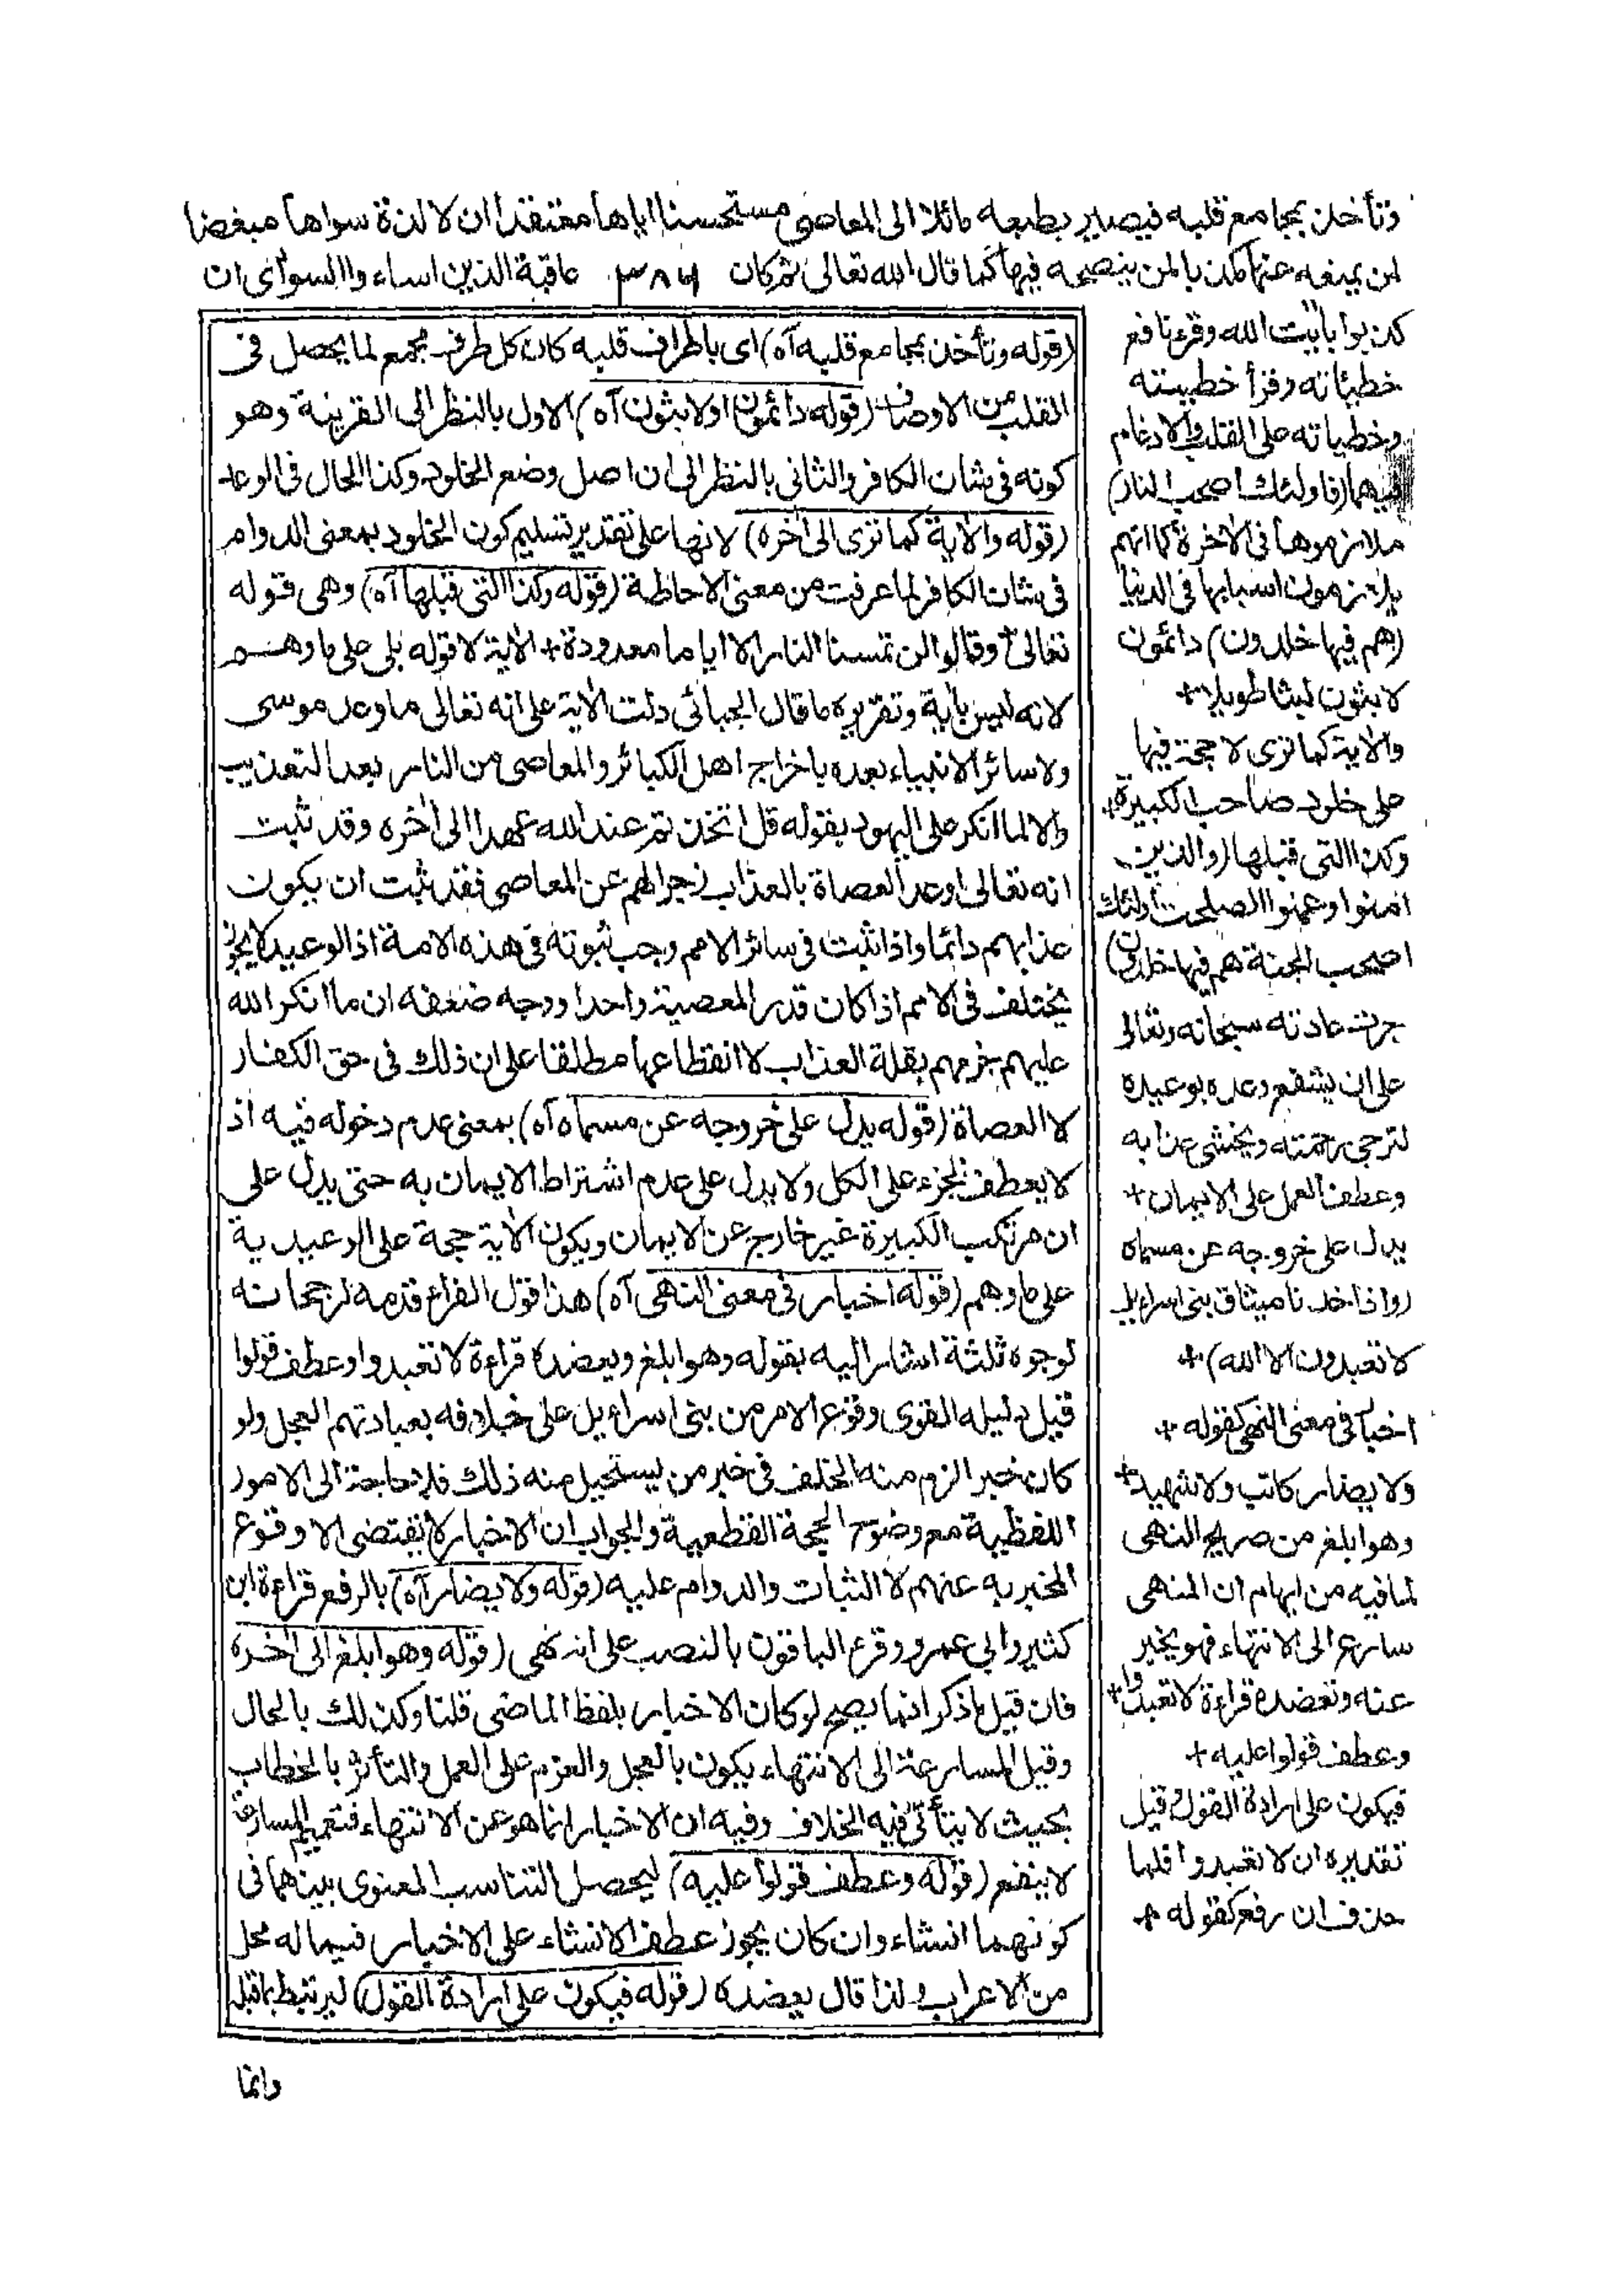 وتأخذ بمجامع قلبه فيصير بطبعه مائلا الى المعاصى مستحسنا اياها معتقدا ان لا لذة سواها مبغضا
لمن يمنعه عنها مكذبا لمن ينصحه فيها كما قال الله تعالى ثم كان ٣٨٦ عاقبة الذين اساءوا السوآى ان
كذبوا بايت الله وقرء نافع
خطيئاته وقرأ خطيبته
وخطياته على القلب والادغام
فيهما (فاولئك اصحب النار)
ملازموها فى الاخرة كما انهم
يلازمون اسبابها فى الدنيا
(هم فيها خلدون) دائمون
لابثون لبثا طويلا +
والاية كما ترى لا حجة فيها
على خلود صاحب الكبيرة +
وكذا التى قبلها (والذين
امنوا وعملوا الصلحت اولئك
اصحب الجنة هم فيها خلدون)
جرت عادته سبحانه وتعالى
على ان يشفع وعده بوعيده
لترجى رحمته ويخشى عذابه
وعطف العمل على الايمان +
يدل على خروجه عن مسماه
(واذ اخذنا ميثاق بنى اسراءيل
لا تعبدون الا الله) +
اخبار فى معنى النهى كقوله +
ولا يضار كاتب ولا شهيد +
وهو ابلغ من صريح النهى
لما فيه من ايهام ان المنهى
سارع الى الانتهاء فهو يخبر
عنه وتعضده قراءة لا تعبدوا +
وعطف قولوا عليه +
فيكون على ارادة القول وقيل
تقديره ان لا تعبدوا فلما
حذف ان رفع كقوله +
(قوله وتأخذ بمجامع قلبه آه) اى باطراف قلبه كان كل طرف مجمع لما يحصل فى
القلب من الاوصاف (قوله دائمون او لابثون آه) الاول بالنظر الى القرينة وهو
كونه فى شان الكافر والثانى بالنظر الى ان اصل وضع الخلود وكذا الحال فى الوعد
(قوله والاية كما ترى الى اخره) لانها على تقدير تسليم كون الخلود بمعنى الدوام
فى شان الكافر لما عرفت من معنى الاحاطة (قوله وكذا التى قبلها آه) وهى قوله
تعالى + وقالوا لن تمسنا النار الا اياما معدودة + الاية لا قوله بلى على ما وهم
لانه ليس باية وتقريره ما قال الجبائى دلت الاية على انه تعالى ما وعد موسى
ولا سائر الانبياء بعده باخراج اهل الكبائر والمعاصى من النار بعد التعذيب
والا لما انكر على اليهود بقوله قل اتخذتم عند الله عهدا الى اخره وقد ثبت
انه تعالى اوعد العصاة بالعذاب زجرا لهم عن المعاصى فقد ثبت ان يكون
عذابهم دائما واذا ثبت فى سائر الامم وجب ثبوته فى هذه الامة اذ الوعيد لا يجوز
يختلف فى الامم اذا كان قدر المعصية واحدا ووجه ضعفه ان ما انكر الله
عليهم جزمهم بقلة العذاب لا انقطاعها مطلقا على ان ذلك فى حق الكفار
لا العصاة (قوله يدل على خروجه عن مسماه آه) بمعنى عدم دخوله فيه اذ
لا يعطف الجزء على الكل ولا يدل على عدم اشتراط الايمان به حتى يدل على
ان مرتكب الكبيرة غير خارج عن الايمان ويكون الاية حجة على الوعيدية
على ما وهم (قوله اخبار فى معنى النهى آه) هذا قول الفراء قدمه لرجحانه
لوجوه ثلثة اشار اليه بقوله وهو ابلغ ويعضده قراءة لا تعبدوا وعطف قولوا
قيل دليله القوى وقوع الامر من بنى اسراءيل على خلافه بعبادتهم العجل ولو
كان خبرا لزم منه الخلف فى خبر من يستحيل منه ذلك فلا حاجة الى الامور
اللفظية مع وضوح الحجة القطعية والجواب ان الاخبار لا يقتضى الا وقوع
المخبر به عنهم لا الثبات والدوام عليه (قوله ولا يضار آه) بالرفع قراءة ابن
كثير وابى عمرو وقرء الباقون بالنصب على انه نهى (قوله وهو ابلغ الى اخره
فان قيل ما ذكر انما يصح لو كان الاخبار بلفظ الماضى قلنا وكذلك بالحال
وقيل المسارعة الى الانتهاء يكون بالعجل والعزم على العمل والتأثر بالخطاب
بحيث لا يتأتى فيه الخلاف وفيه ان الاخبار انما هو عن الانتهاء فتعميم المسارعة
لا ينفع (قوله وعطف قولوا عليه) ليحصل التناسب المعنوى بينهما فى
كونهما انشاء وان كان يجوز عطف الانشاء على الاخبار فيما له محل
من الاعراب ولذا قال يعضده (قوله فيكون على ارادة القول) ليرتبط بما قبله
وانما